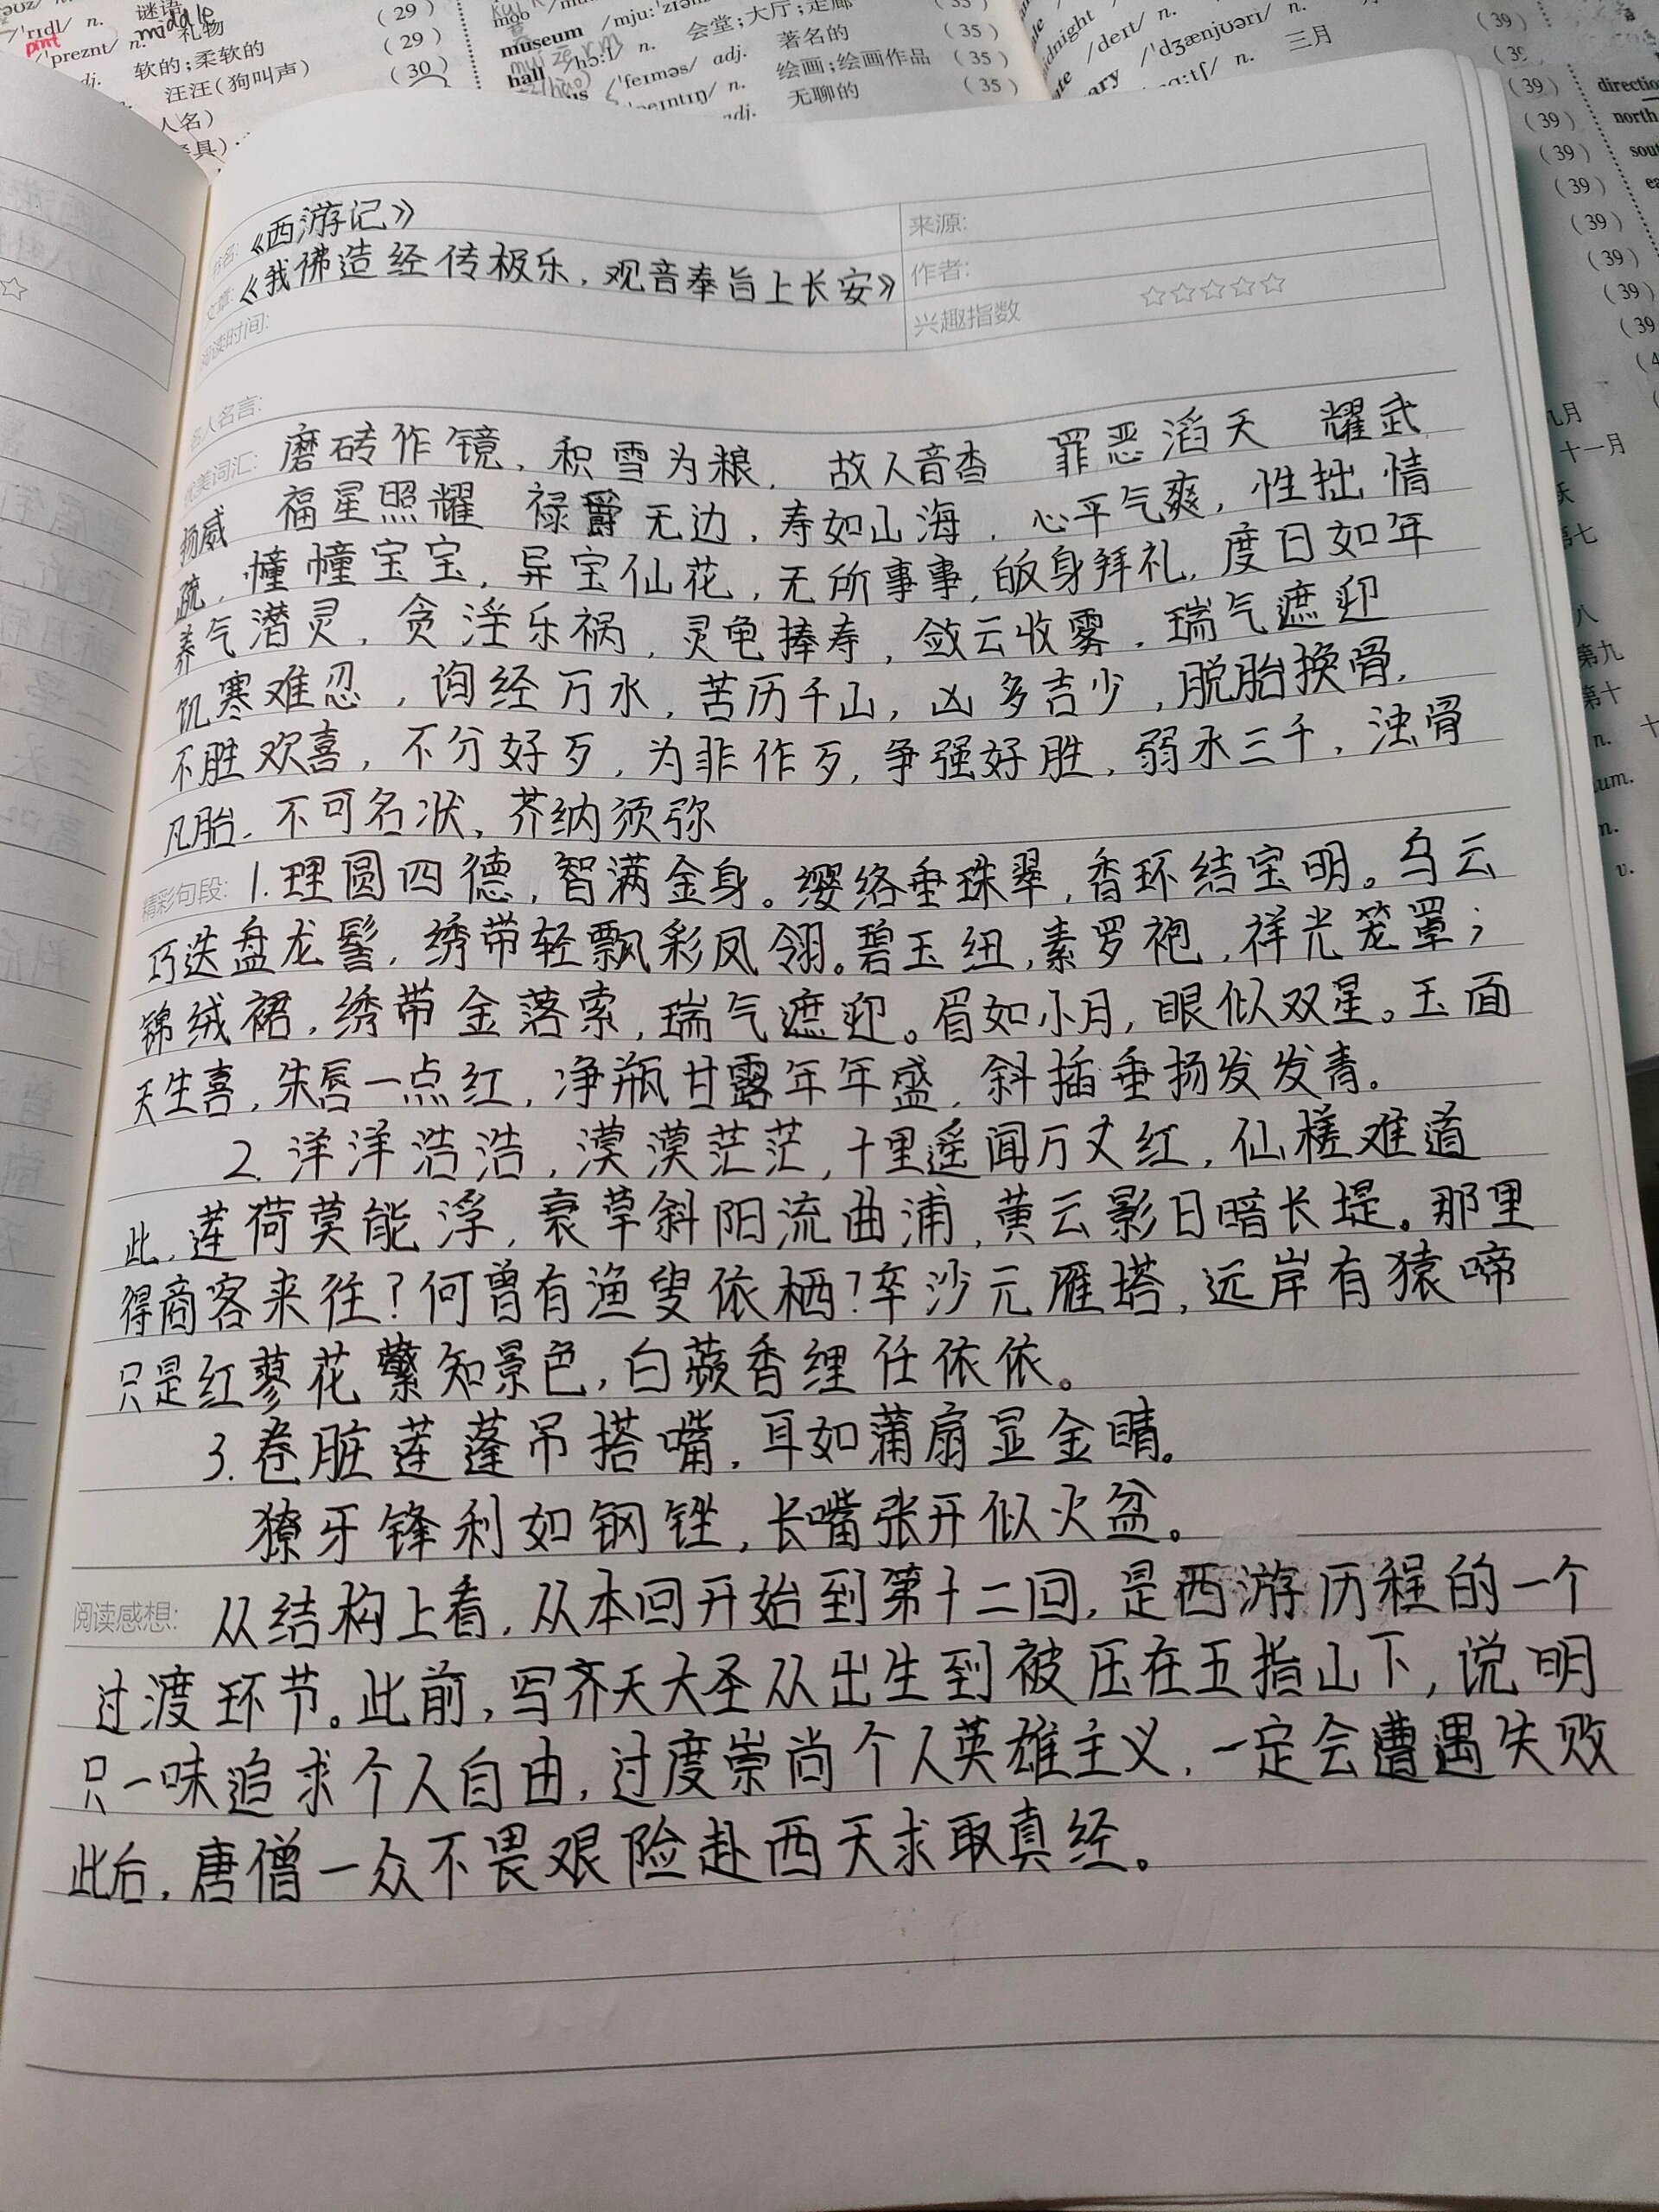 谜语
/ˈrɪdl/ n. middle
(29)
/ˈpreznt/ n. 礼物
(29)
adj. 软的;柔软的
(30)
汪汪(狗叫声)
人名)
museum /mjuːˈzɪəm/
hall /hɔːl/ n. 会堂;大厅;走廊
/ˈfeɪməs/ adj. 著名的
(35)
/ˈpeɪntɪŋ/ n. 绘画;绘画作品
(35)
adj. 无聊的
(35)
midnight
/deɪt/ n.
/ˈdʒænjuəri/ n.
三月
(39)
(39)
(39)
(39)
(39)
(39)
(39)
(39)
north
十一月
第七
八
第九
第十
书名: 《西游记》
来源:
文章: 《我佛造经传极乐,观音奉旨上长安》
作者:
阅读时间:
兴趣指数 ☆☆☆☆☆
名人名言:
优美词汇: 磨砖作镜,积雪为粮, 故人音杳 罪恶滔天 耀武
扬威 福星照耀 禄爵无边,寿如山海,心平气爽,性拙情
疏,幢幢宝宝,异宝仙花,无所事事,皈身拜礼,度日如年
养气潜灵,贪淫乐祸,灵龟捧寿,敛云收雾,瑞气遮迎
饥寒难忍,询经万水,苦历千山,凶多吉少,脱胎换骨,
不胜欢喜,不分好歹,为非作歹,争强好胜,弱水三千,浊骨
凡胎、不可名状、芥纳须弥
精彩句段: 1.理圆四德,智满金身。缨络垂珠翠,香环结宝明。乌云
巧迭盘龙髻,绣带轻飘彩凤翎。碧玉纽,素罗袍,祥光笼罩;
锦绒裙,绣带金落索,瑞气遮迎。眉如小月,眼似双星。玉面
天生喜,朱唇一点红,净瓶甘露年年盛,斜插垂扬发发青。
2.洋洋浩浩,漠漠茫茫,十里遥闻万丈红,仙槎难道
此,莲荷莫能浮,衰草斜阳流曲浦,黄云影日暗长堤。那里
得商客来往?何曾有渔叟依栖?卒沙元雁塔,远岸有猿啼
只是红蓼花蘩知景色,白蘋香缠任依依。
3.卷脏莲蓬吊搭嘴,耳如蒲扇显金睛。
獠牙锋利如钢锉,长嘴张开似火盆。
阅读感想: 从结构上看,从本回开始到第十二回,是西游历程的一个
过渡环节。此前,写齐天大圣从出生到被压在五指山下,说明
只一味追求个人自由,过度崇尚个人英雄主义,一定会遭遇失败
此后,唐僧一众不畏艰险赴西天求取真经。